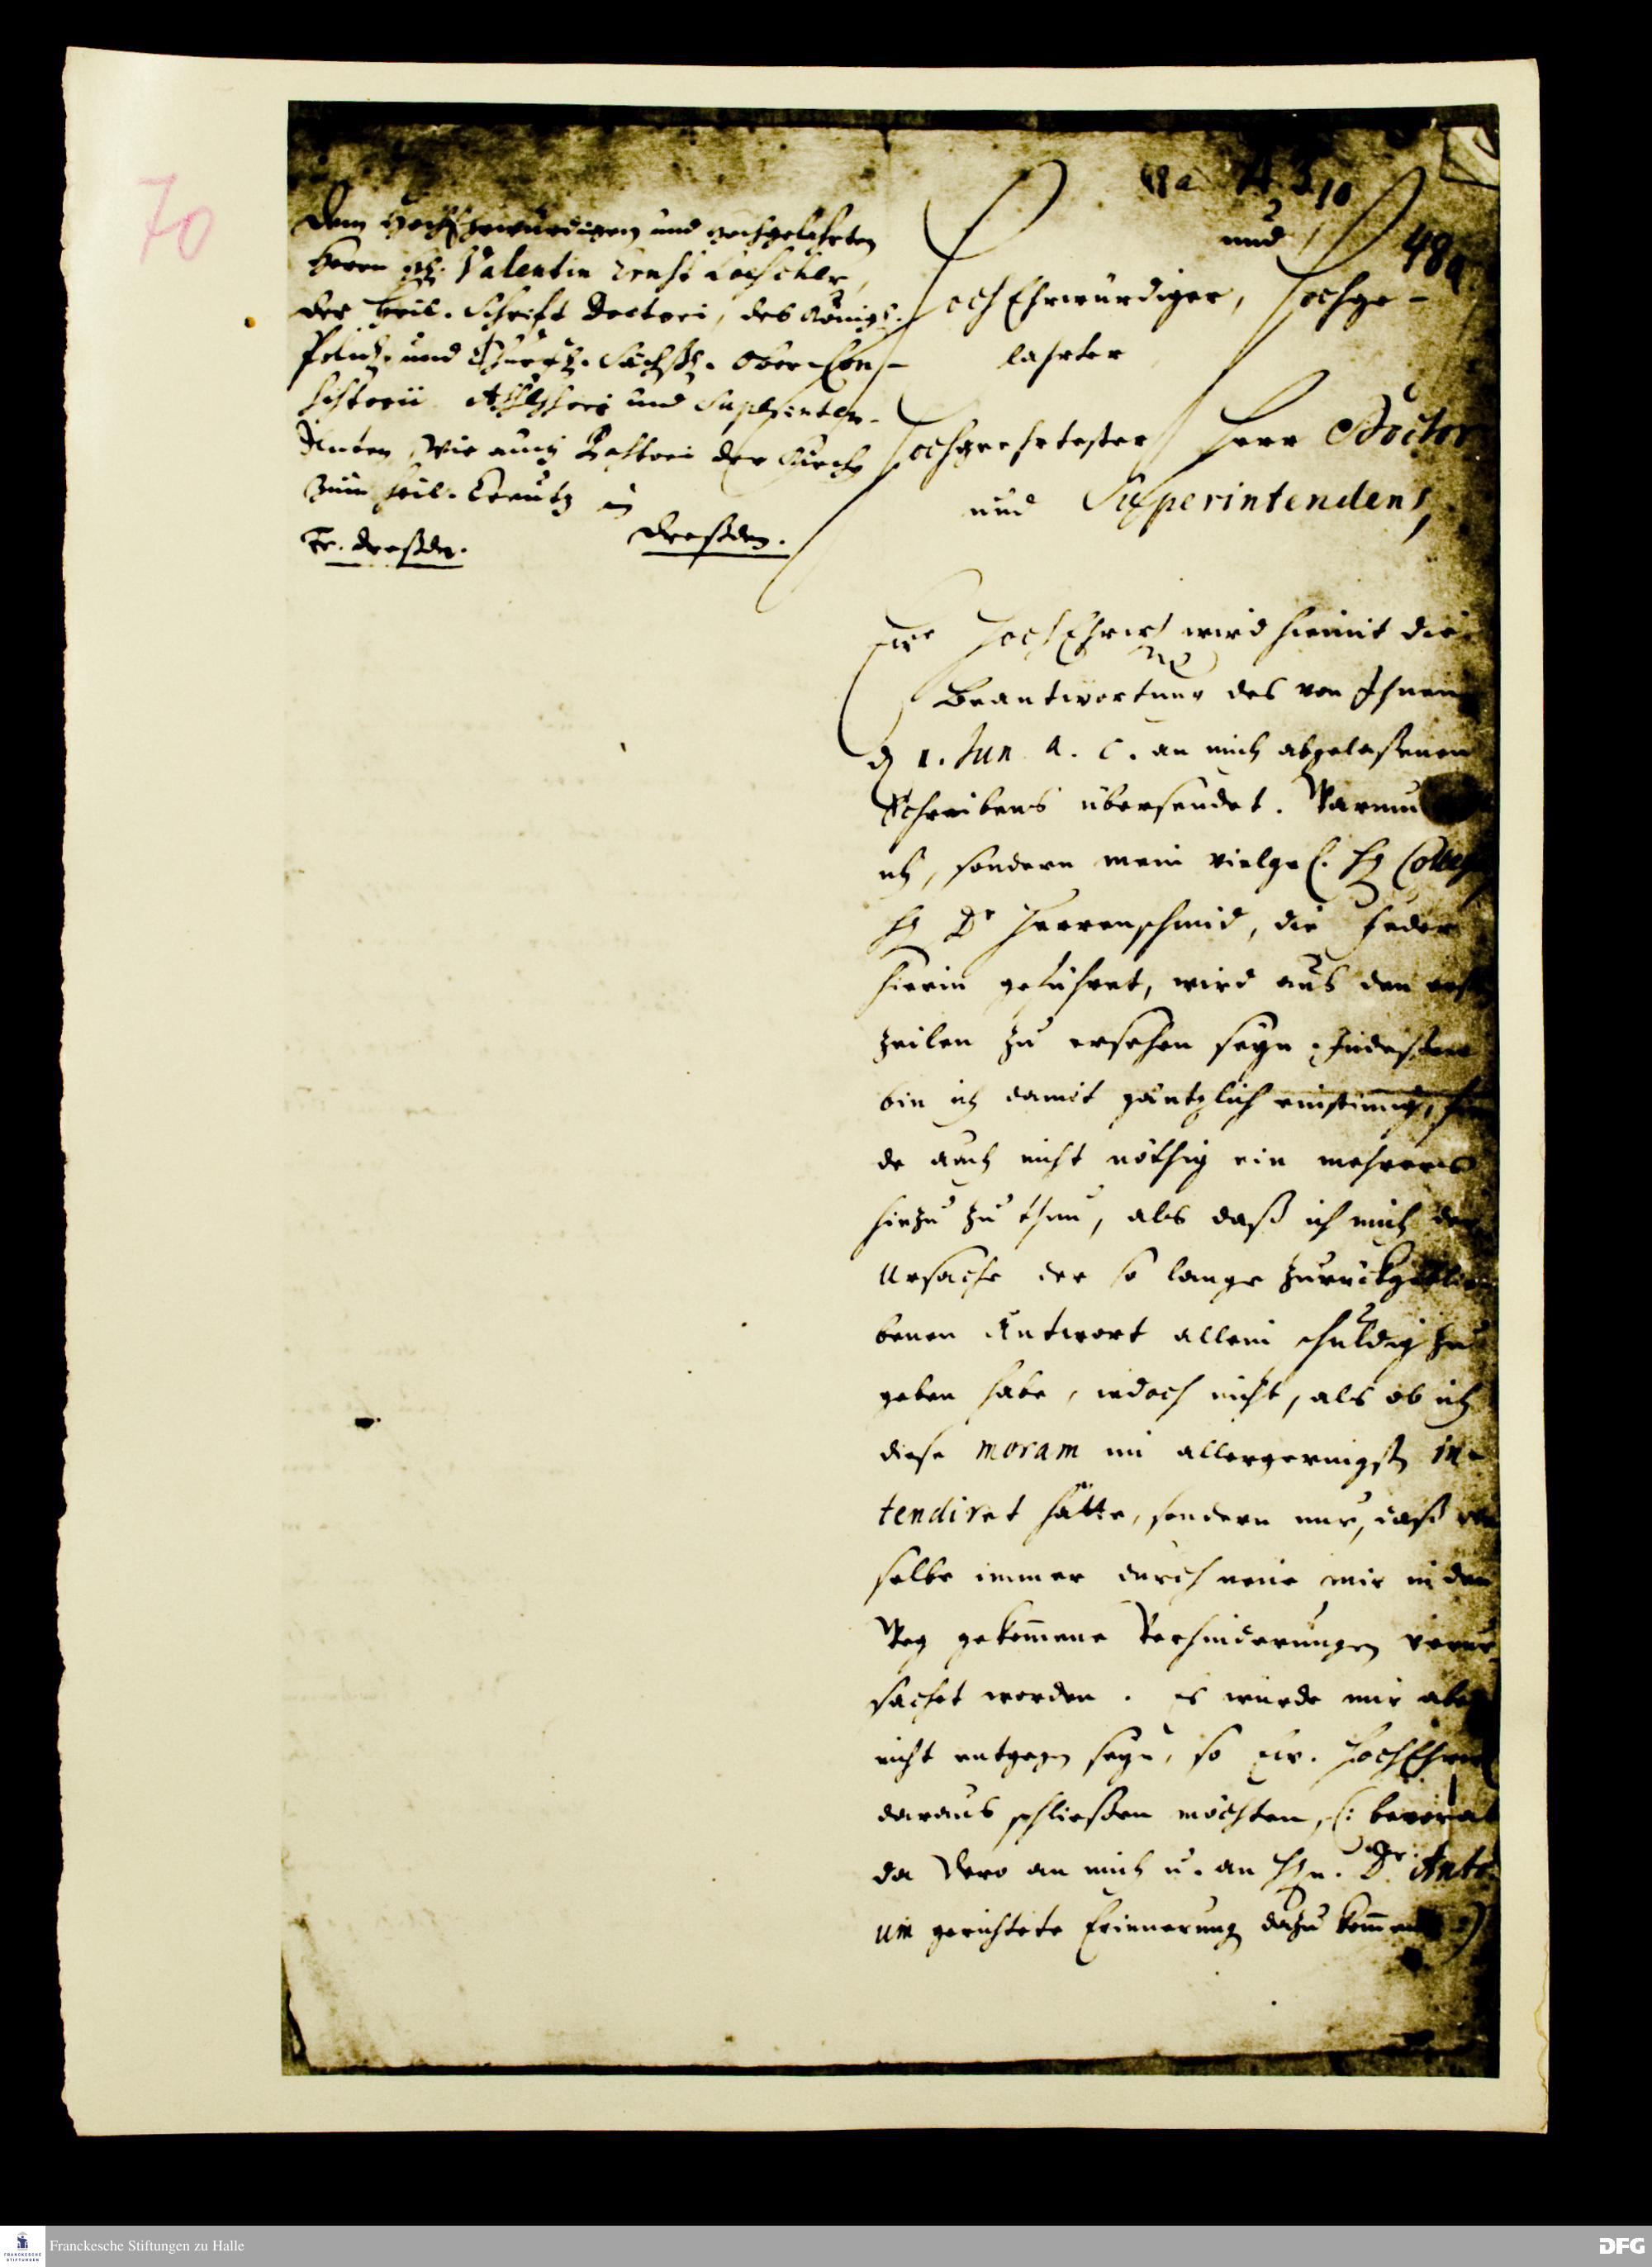 70
48a
Dem HochEhrwürdigen und Hochgelahrten
Herrn H. Valentin Ernst Loescher,
der Heil. Schrift Doctori, des Königl.
Polnis. und Churfl. Sächß. Ober-Con-
sistorii Assessori und Superinten-
denten, wie auch Pastori der Kirche
zum heil. Creutz in
Dreßden.
Fr. Dreßden.
und
HochEhrwürdiger, Hochge-
lahrter
Hochgeehrtester Herr Doctor
und Superintendens,
Ew. HochEhrw. wird hiemit die
Beantwortung des von Ihnen
d. 1. Jun. a. c. an mich abgelaßenen
Schreibens übersendet. Warum
ich, sondern mein vielge. H. Colleg
H. Dr Herrenschmid, die Feder
hierin geführet, wird aus den erst
Zeilen zu ersehen seyn. Indeßen
bin ich damit gäntzlich einstimmig, fin
de auch nicht nöthig ein mehrers
hiezu zu thun, als daß ich mich der
Ursache der so lange zurückgeblie
benen Antwort allein schuldig zu
geben habe, iedoch nicht, als ob ich
diese moram im allergeringsten in-
tendiret hätte, sondern nur, daß
selbe immer durch neue mir in den
Weg gekommene Verhinderungen verur
sachet worden. Es würde mir aber
nicht entgegen seyn, so Ew. HochEhrw
daraus schließen möchten, (: bevorab
da Dero an mich u. an Hn. D. Anto
um gerichtete Erinnerung dazu kommen :)
Franckesche Stiftungen zu Halle
FRANCKESCHE
STIFTUNGEN
DFG